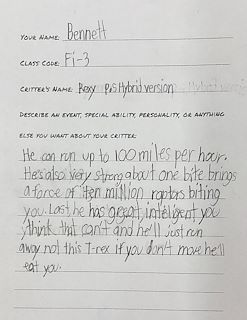 YOUR NAME: Bennett
CLASS CODE: Fi-3
CRITTER'S NAME: Rexy P&S Hybrid version
DESCRIBE AN EVENT, SPECIAL ABILITY, PERSONALITY, OR ANYTHING
ELSE YOU WANT ABOUT YOUR CRITTER:
He can run up to 100 miles per hour.
He's also very strong about one bite brings
a force of ten million raptors biting
you. Last, he has great, inteligent you
think that can't and he'll just run
away not this T-rex if you don't move he'll
eat you.